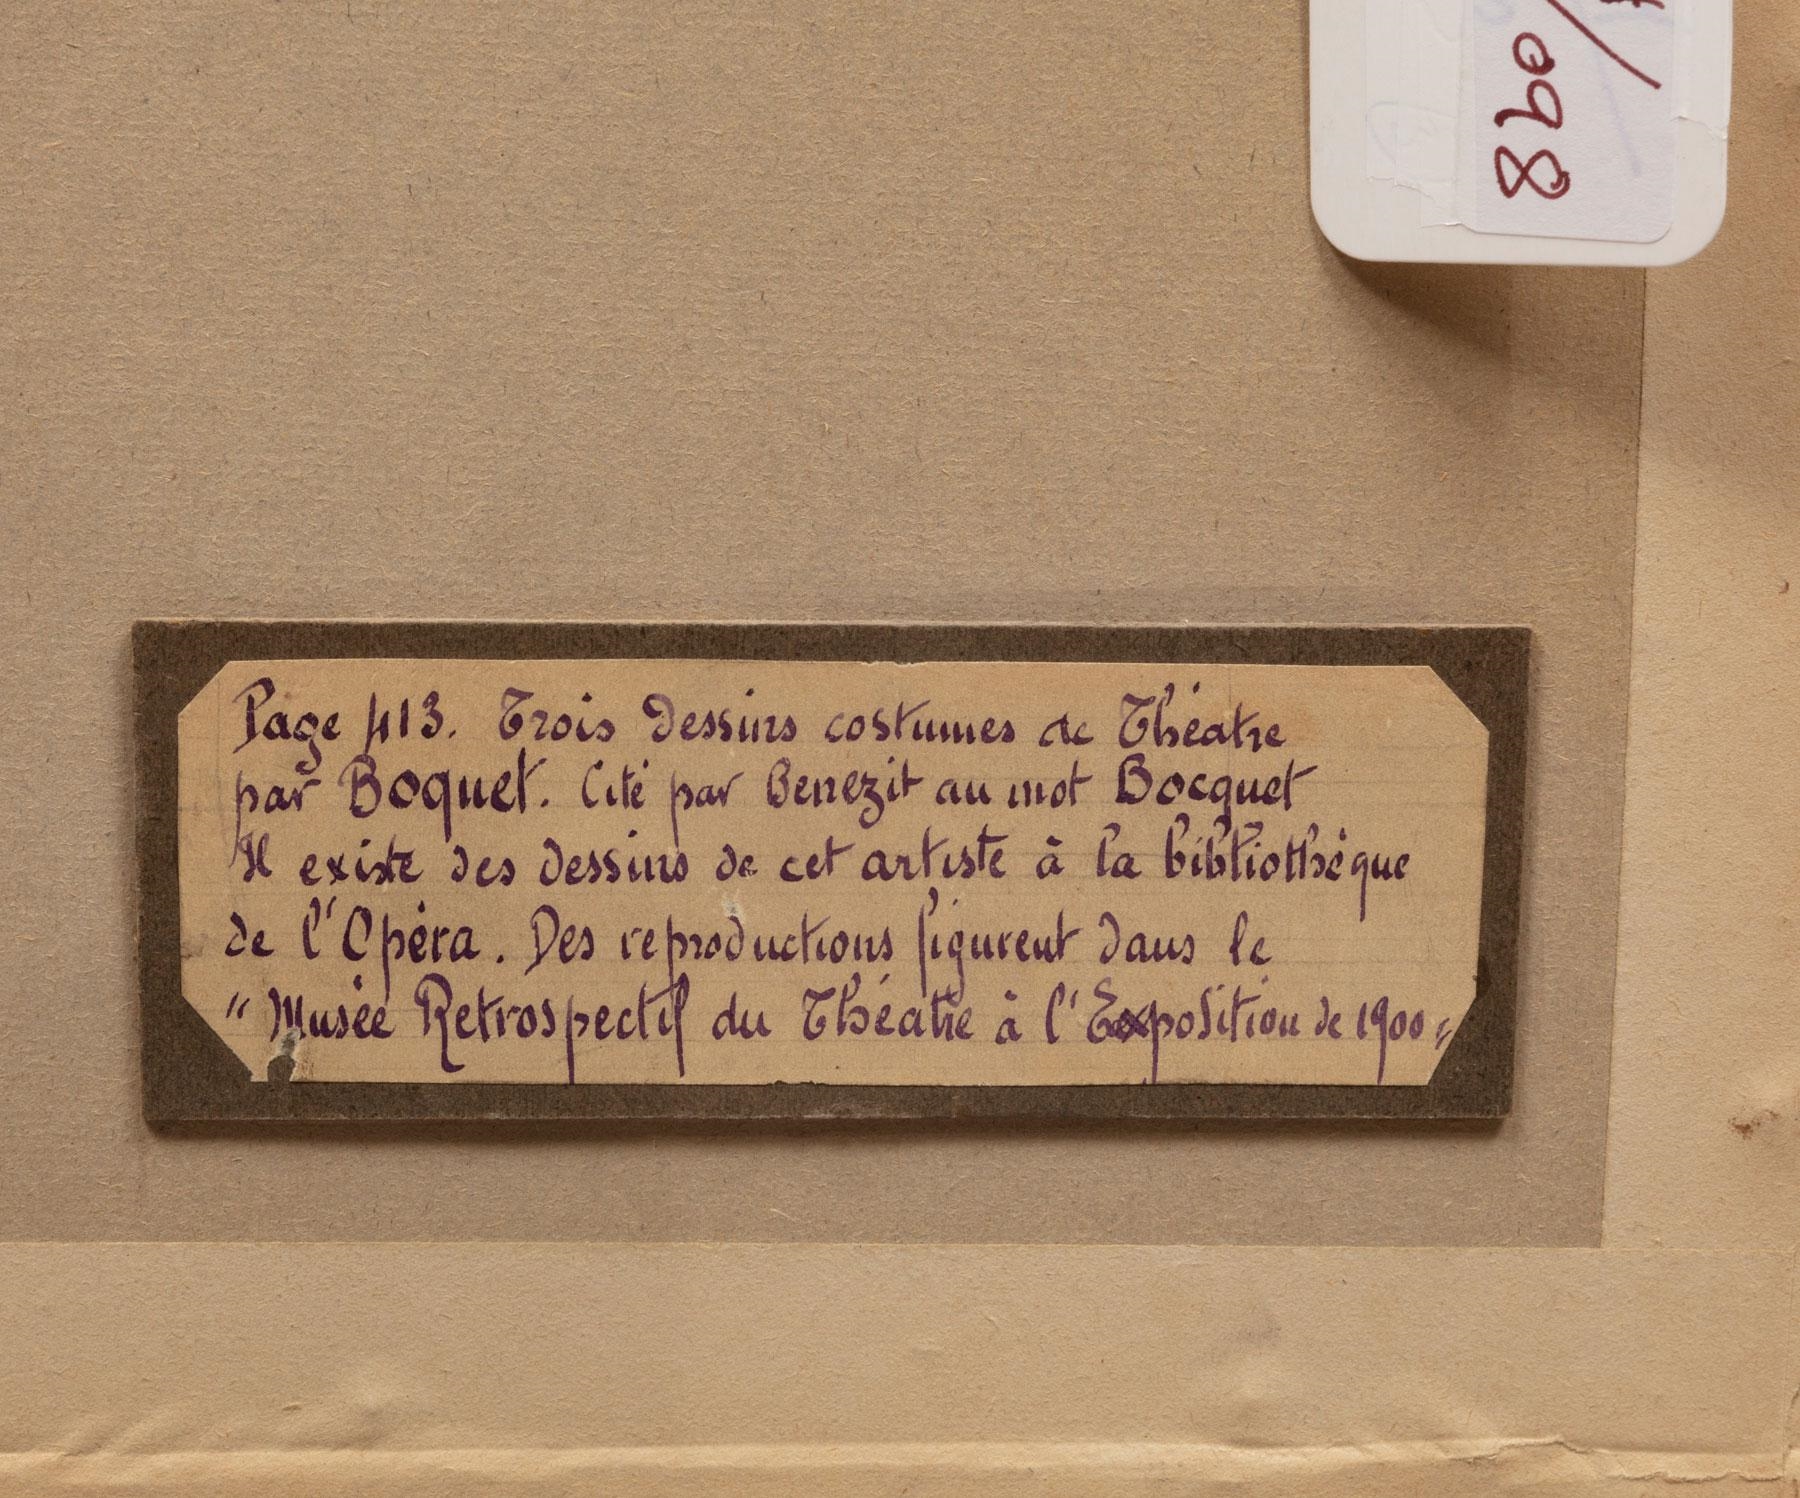 /098
Page 413. Trois Dessins costumes de Théatre
par Boquet. Cité par Benezit au mot Bocquet
Il existe des dessins de cet artiste à la bibliothèque
de l'Opéra. Des reproductions figurent dans le
"Musée Retrospectif du Théatre à l'Exposition de 1900"